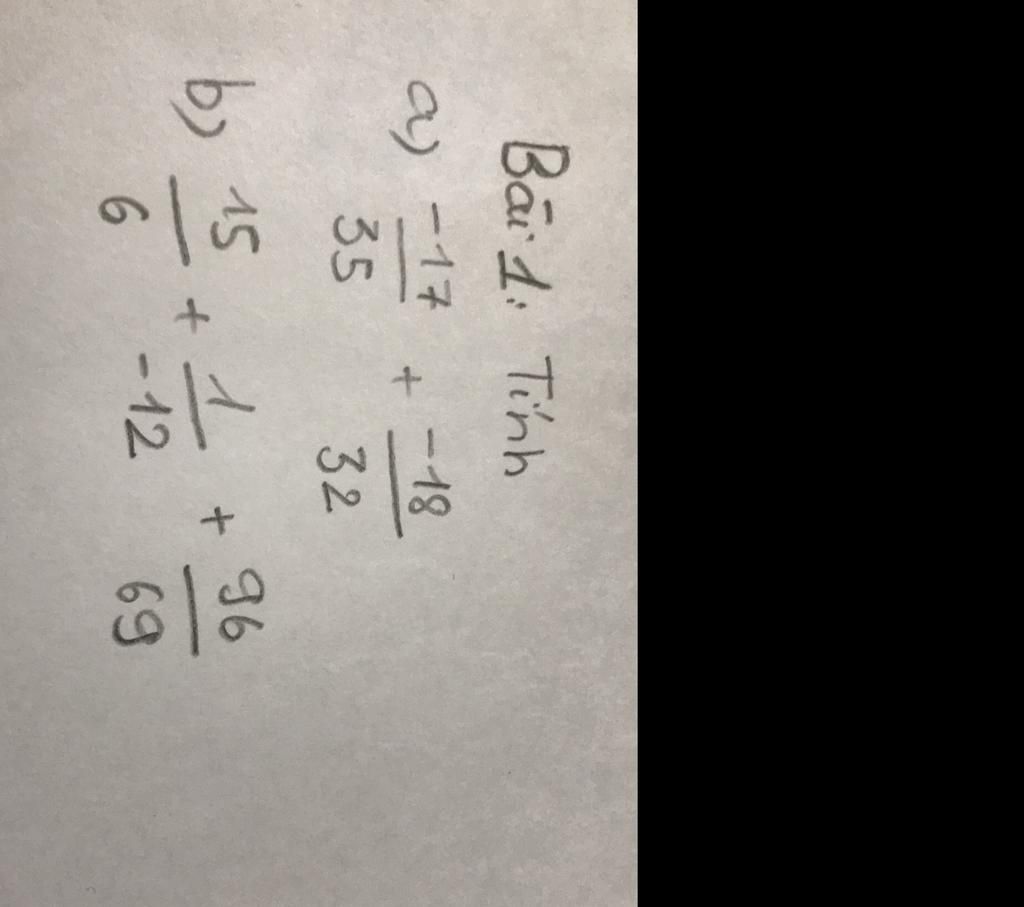 Bài 1: Tính
a) -17/35 + -18/32
b) 15/6 + 1/-12 + 96/69